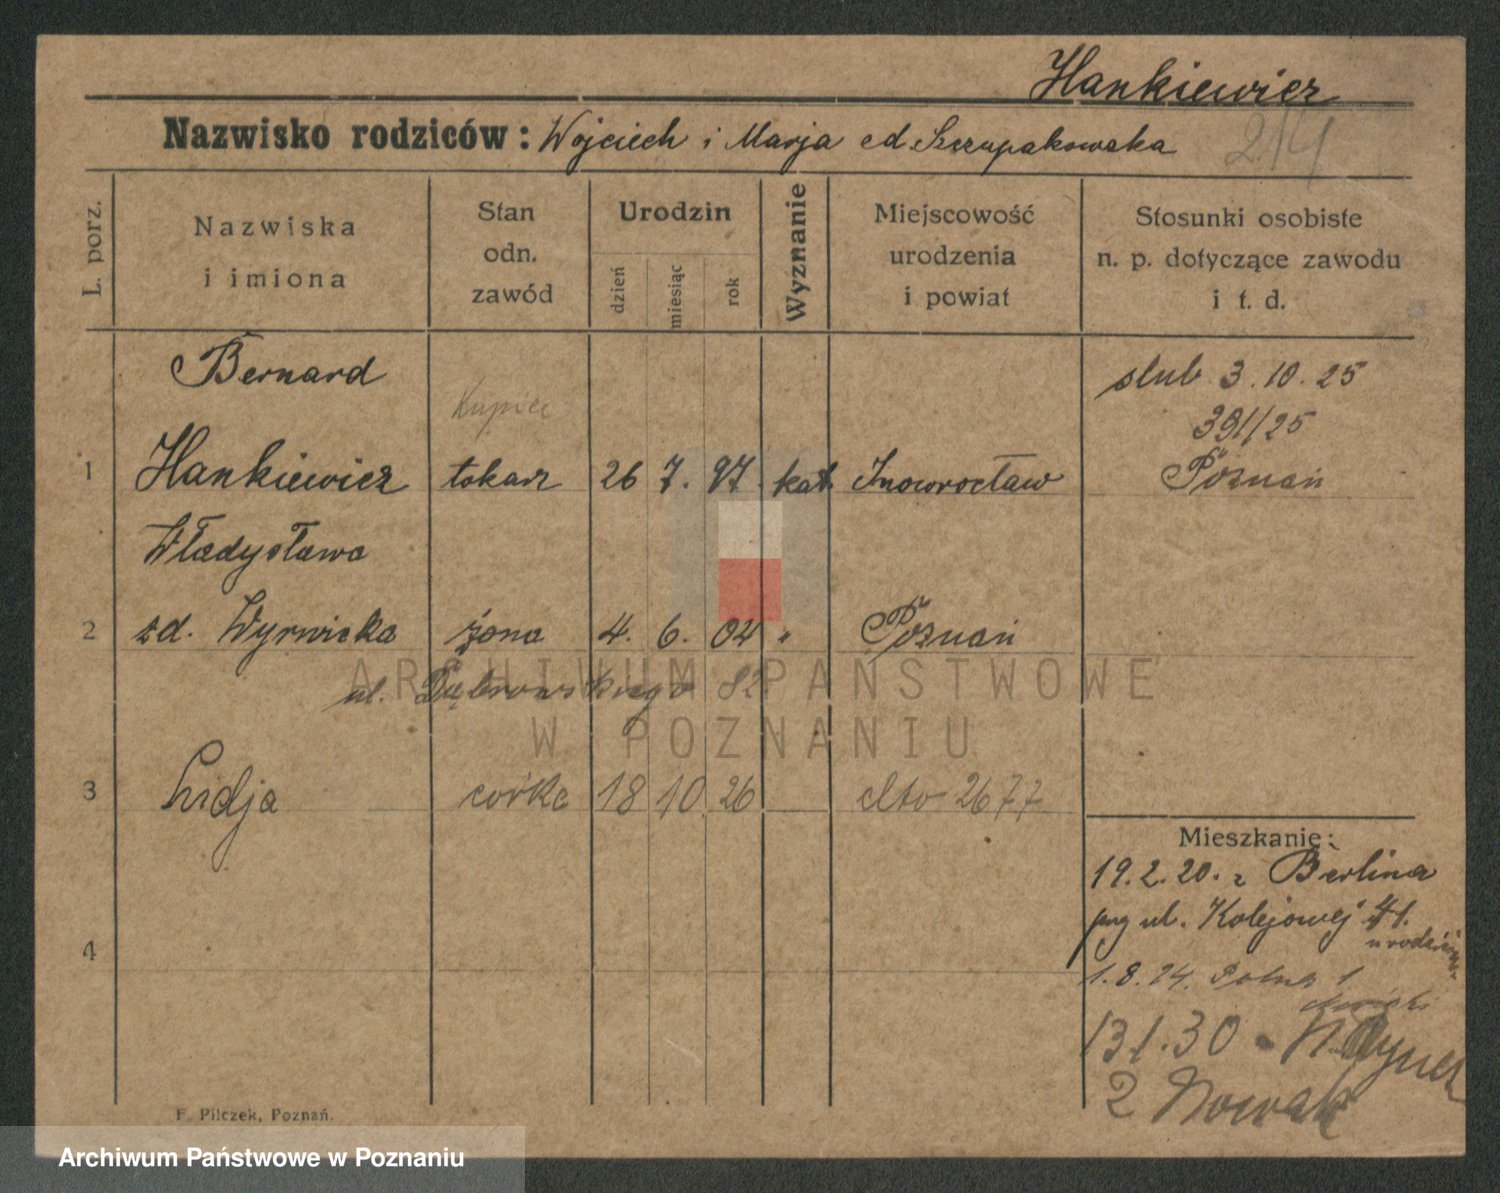 Hankiewicz
Nazwisko rodziców: Wojciech i Marja zd Szczupakowska
214
L. porz.
Nazwiska i imiona
Stan odn. zawód
Urodzin
dzień miesiąc rok
Wyznanie
Miejscowość urodzenia i powiat
Stosunki osobiste n. p. dotyczące zawodu i t. d.
Bernard
slub 3.10.25
kupiec
391/25
1 Hankiewicz tokarz 26 7. 97 kat. Inowrocław Poznań
Władysława
2 zd. Wyrwicka żona 4. 6. 04 " Poznań
ul. Dąbrowskiego 82
ARCHIWUM PAŃSTWOWE
W POZNANIU
3 Lidja córka 18 10 26 2677
Mieszkanie:
19.2.20. z Berlina
ul. Kolejowej 41.
4
1.8.24. Polna 1
131.30
2 Nowak
F. Pilczek, Poznań.
Archiwum Państwowe w Poznaniu